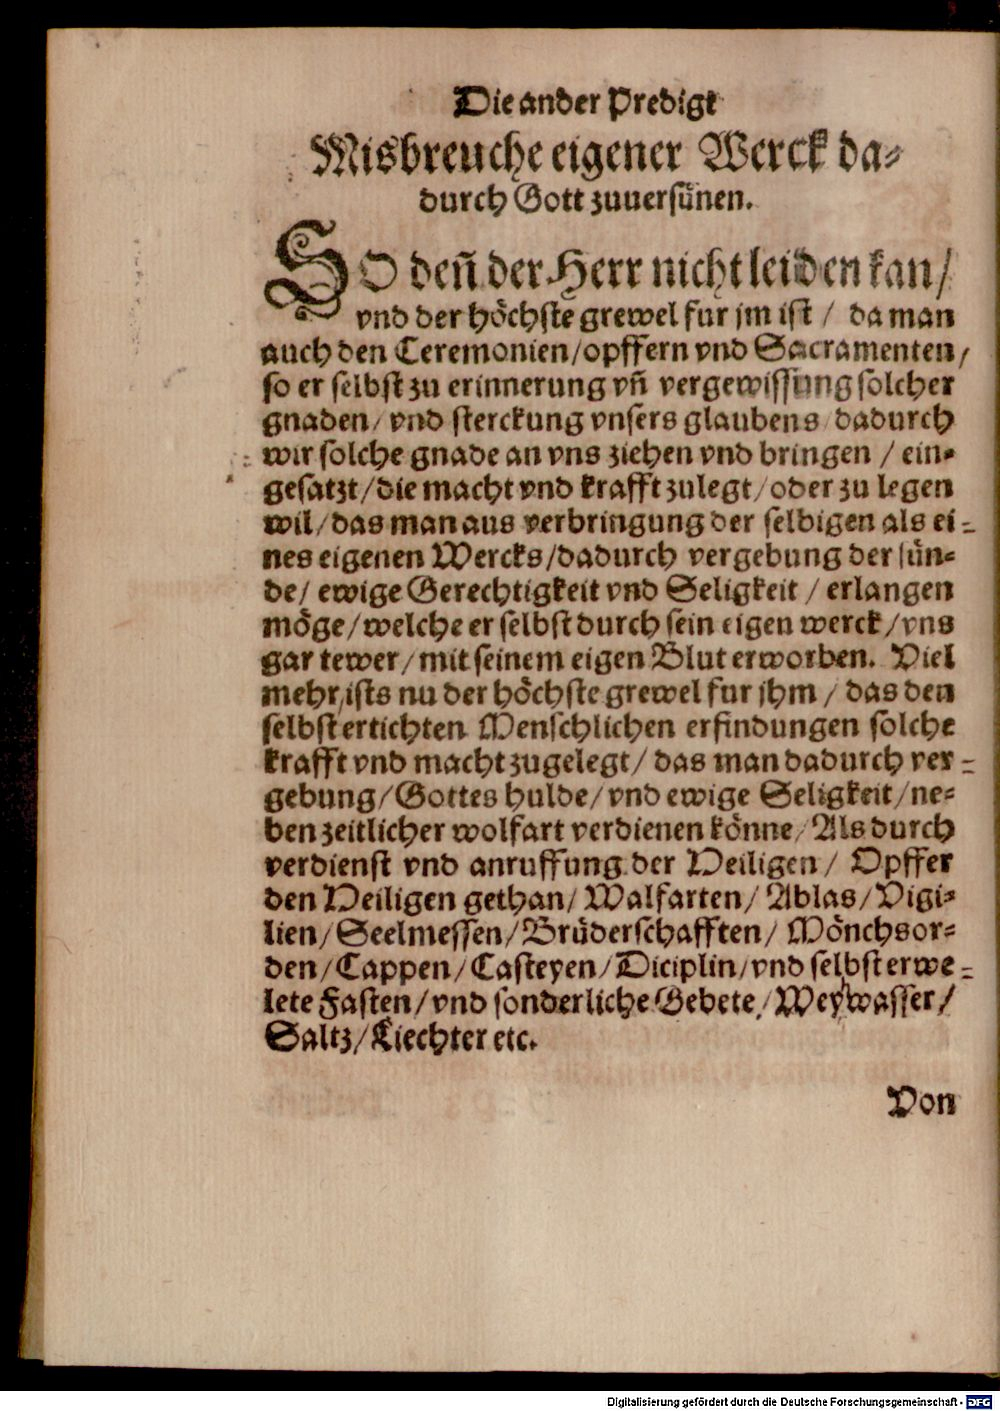 Die ander Predigt
Misbreuche eigener Werck da⸗
durch Gott zuuersünen.
SO deñ der Herr nicht leiden kan/
vnd der höchste grewel fur jm ist / da man
auch den Ceremonien/opffern vnd Sacramenten/
so er selbst zu erinnerung vñ vergewissung solcher
gnaden/ vnd sterckung vnsers glaubens/dadurch
wir solche gnade an vns ziehen vnd bringen / ein⸗
gesatzt/die macht vnd krafft zulegt/oder zu legen
wil/das man aus verbringung der selbigen als ei⸗
nes eigenen Wercks/dadurch vergebung der sün⸗
de/ ewige Gerechtigkeit vnd Seligkeit / erlangen
möge/welche er selbst durch sein eigen werck/vns
gar tewer/mit seinem eigen Blut erworben. Viel
mehr/ists nu der höchste grewel fur jhm / das den
selbst ertichten Menschlichen erfindungen solche
krafft vnd macht zugelegt/ das man dadurch ver⸗
gebung/Gottes hulde/vnd ewige Seligkeit/ne⸗
ben zeitlicher wolfart verdienen könne/Als durch
verdienst vnd anruffung der Heiligen/ Opffer
den Heiligen gethan/ Walfarten/ Ablas/Vigi⸗
lien/Seelmessen/Brüderschafften/ Mönchsor⸗
den/Cappen/Casteyen/Diciplin/vnd selbst erwe⸗
lete Fasten/vnd sonderliche Gebete/Weywasser/
Saltz/Liechter etc.
Von
Digitalisierung gefördert durch die Deutsche Forschungsgemeinschaft - DFG